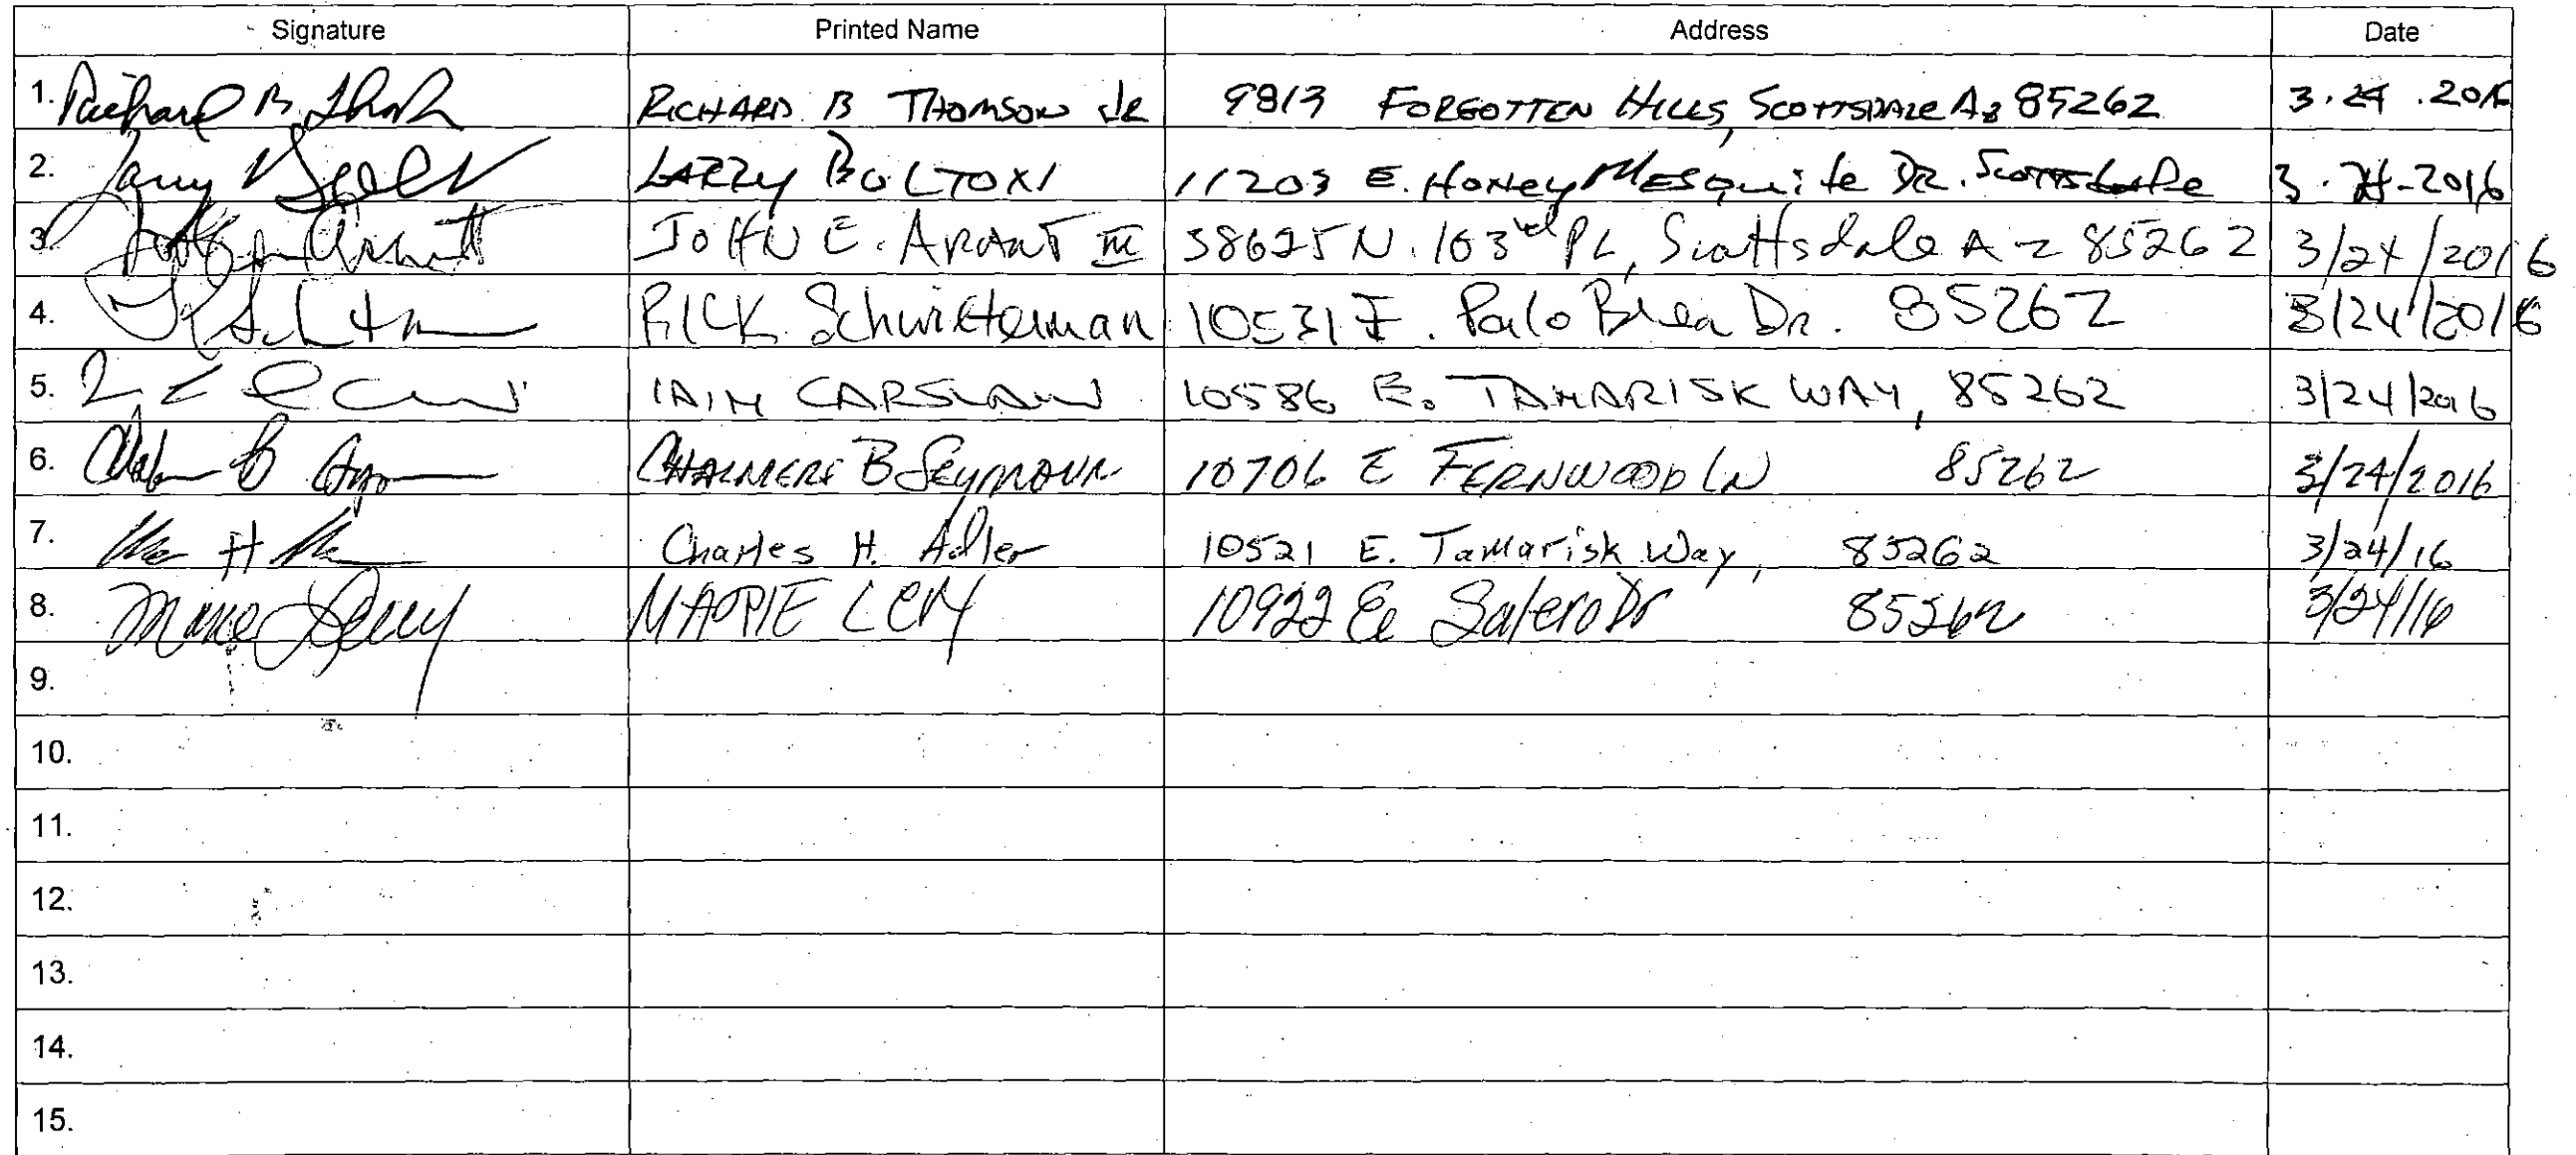 Signature Printed Name Address Date
1. RICHARD B THOMSON JR 9813 FORGOTTEN HILLS, SCOTTSDALE AZ 85262 3.24.2016
2. LARRY BOLTON 11203 E. HONEY MESQUITE DR. Scottsdale 3.24-2016
3. JOHN E. ARANT III 38625 N. 103rd PL, Scottsdale AZ 85262 3/24/2016
4. RICK Schwitterman 10531 E. Palo Brea Dr. 85262 3/24/2016
5. IAIN CARSLAW 10586 E. TAMARISK WAY, 85262 3/24/2016
6. CHALMERS B SEYMOUR 10706 E FERNWOOD LN 85262 3/24/2016
7. Charles H. Adler 10521 E. Tamarisk Way, 85262 3/24/16
8. 10922 E. Salero Dr 85262 3/24/16
9.
10.
11.
12.
13.
14.
15.